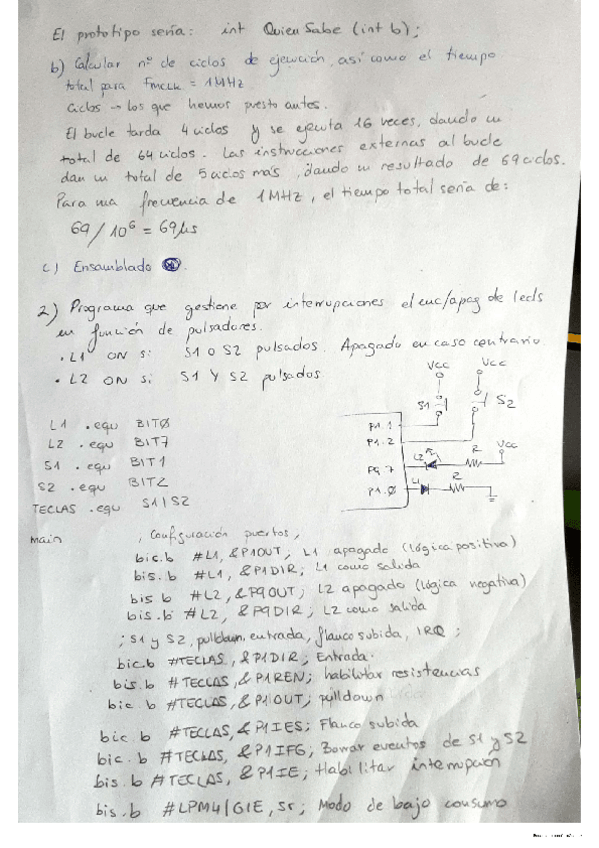 El prototipo sería: int QuienSabe (int b);
b) Calcular nº de ciclos de ejecución, así como el tiempo
total para FMCLK = 1MHz.
Ciclos → los que hemos puesto antes.
El bucle tarda 4 ciclos y se ejecuta 16 veces, dando un
total de 64 ciclos. Las instrucciones externas al bucle
dan un total de 5 ciclos más, dando un resultado de 69 ciclos.
Para una frecuencia de 1MHz, el tiempo total sería de:
69/10⁶ = 69µs
c) Ensamblado
2) Programa que gestione por interrupciones el enc/apag de leds
en función de pulsadores.
· L1 ON si S1 O S2 pulsados. Apagado en caso contrario
· L2 ON si S1 Y S2 pulsados
Vcc Vcc
S1 S2
L1 .equ BIT0
L2 .equ BIT7
S1 .equ BIT1
S2 .equ BIT2
TECLAS .equ S1|S2
P1.1
P1.2
P9.7 L2 R Vcc
P1.0 L1 R
main ; Configuración puertos,
bic.b #L1, &P1OUT; L1 apagado (lógica positiva)
bis.b #L1, &P1DIR; L1 como salida
bis b #L2, &P9OUT; L2 apagado (lógica negativa)
bis.b #L2, &P9DIR; L2 como salida
; S1 y S2, pulldown, entrada, flanco subida, IRQ ;
bic.b #TECLAS, &P1DIR; Entrada.
bis.b #TECLAS, &P1REN; habilitar resistencias
bic.b #TECLAS, &P1OUT; pulldown
bic.b #TECLAS, &P1IES; Flanco subida
bic.b #TECLAS, &P1IFG; Borrar eventos de S1 y S2
bis.b #TECLAS, &P1IE; Habilitar interrupción
bis.b #LPM4|GIE, Sr; Modo de bajo consumo